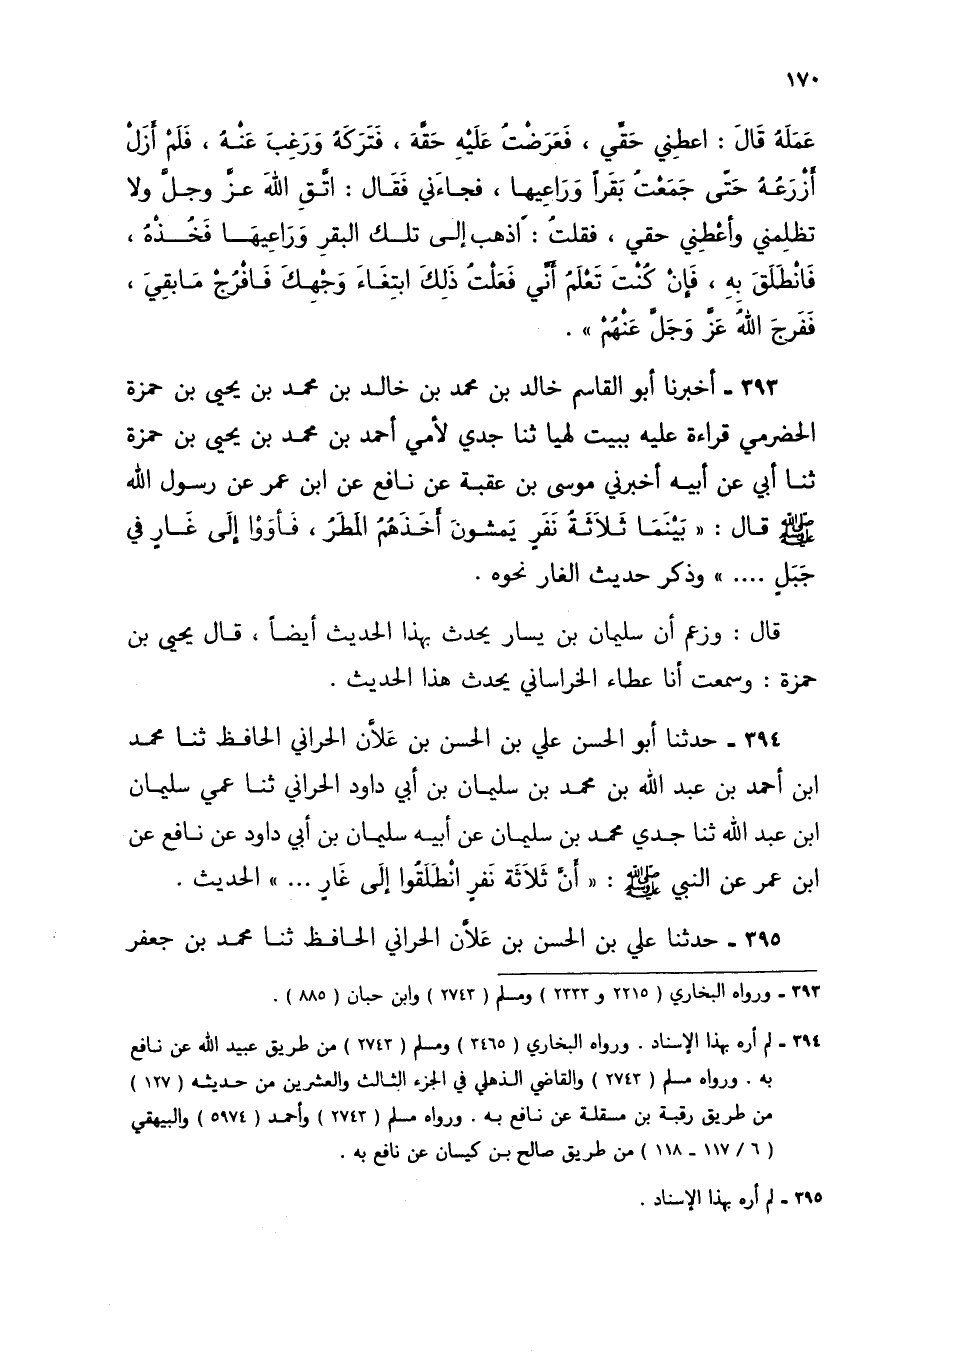 ١٧٠
عَمَلَهُ قَالَ : اعطِني حَقّي ، فَعَرَضْتُ عَلَيْهِ حَقَّهَ ، فَتَرَكَهُ وَرَغِبَ عَنْهُ ، فَلَمْ أَزَلْ
أَزْرَعُهُ حَتَّى جَمَعْتُ بَقَراً وَرَاعِيها ، فجاءَني فَقَال : اتَّقِ اللهَ عزَّ وجلَّ ولا
تظلِمني وأعْطِني حقي ، فقلتُ : اذهب إلى تلك البقرِ وَرَاعِيهَا فَخُذْهُ ،
فَانْطَلَقَ بِهِ ، فَإِنْ كُنْتَ تَعْلَمُ أَنّي فَعَلْتُ ذَلِكَ ابتِغَاءَ وَجْهِكَ فَافْرُجْ مَابقِيَ ،
فَفَرجَ اللهُ عَزَّ وَجَلَّ عَنْهُمْ » .
٣٩٣ - أخبرنا أبو القاسم خالد بن محمد بن خالد بن محمد بن يحيى بن حمزة
الحضرمي قراءة عليه ببيت لهيا ثنا جدي لأمي أحمد بن محمد بن يحيى بن حمزة
ثنا أبي عن أبيه أخبرني موسى بن عقبة عن نافع عن ابن عمر عن رسول الله
ﷺ قال : « بَيْنَمَا ثَلاَثَةُ نَفَرٍ يَمشونَ أَخَذَهُمُ المَطَرُ ، فَأوَوْا إِلَى غَارٍ في
جَبَلٍ .... » وذكر حديث الغار نحوه .
قال : وزعم أن سليمان بن يسار يحدث بهذا الحديث أيضاً ، قال يحيى بن
حمزة : وسمعت أنا عطاء الخراساني يحدث هذا الحديث .
٣٩٤ - حدثنا أبو الحسن علي بن الحسن بن عَلاَّن الحراني الحافظ ثنا محمد
ابن أحمد بن عبد الله بن محمد بن سليمان بن أبي داود الحراني ثنا عمي سليمان
ابن عبد الله ثنا جدي محمد بن سليمان عن أبيه سليمان بن أبي داود عن نافع عن
ابن عمر عن النبي ﷺ : « أَنَّ ثَلاَثَة نَفرٍ انْطَلَقُوا إلَى غَارٍ ... » الحديث .
٣٩٥ - حدثنا علي بن الحسن بن عَلاَّن الحراني الحافظ ثنا محمد بن جعفر
٣٩٣ - ورواه البخاري ( ٢٢١٥ و ٢٣٣٣ ) ومسلم ( ٢٧٤٣ ) وابن حبان ( ٨٨٥ ) .
٣٩٤ - لم أره بهذا الإسناد . ورواه البخاري ( ٣٤٦٥ ) ومسلم ( ٢٧٤٣ ) من طريق عبيد الله عن نافع
به . ورواه مسلم ( ٢٧٤٣ ) والقاضي الذهلي في الجزء الثالث والعشرين من حديثه ( ١٢٧ )
من طريق رقبة بن مسقلة عن نافع به . ورواه مسلم ( ٢٧٤٣ ) وأحمد ( ٥٩٧٤ ) والبيهقي
( ٦ / ١١٧ - ١١٨ ) من طريق صالح بن كيسان عن نافع به .
٣٩٥ - لم أره بهذا الإسناد .